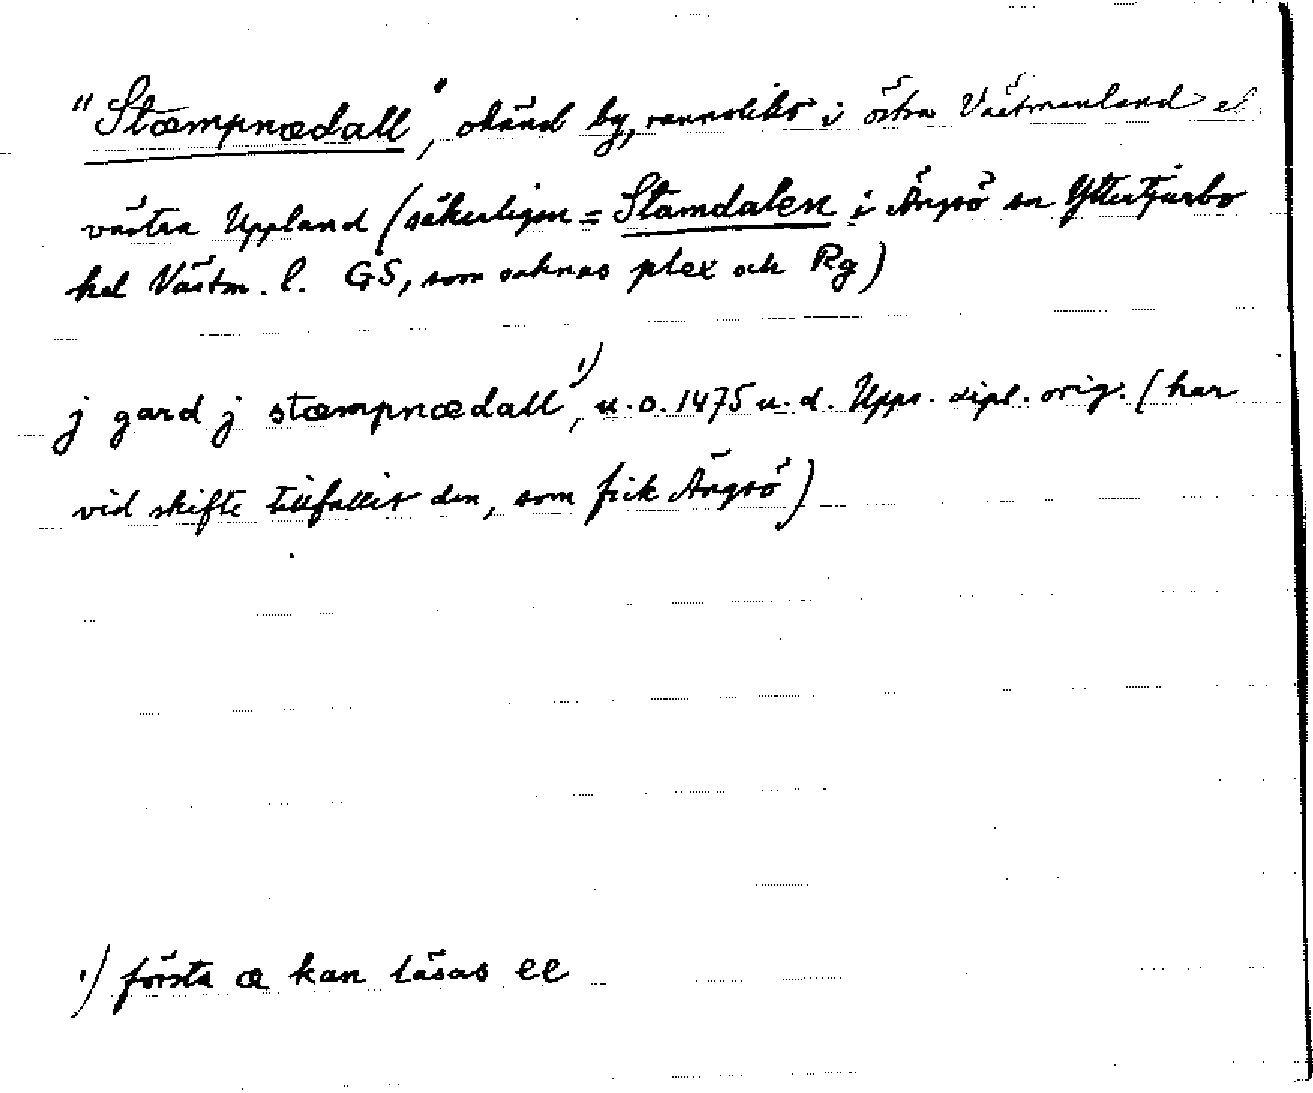 "Stæmpnædall", okänd by, sannolikt i östra Västmanland el
västra Uppland (säkerligen = Stamdalen i Ängsö sn Yttertjurbo
hd Västm. l. GS, som saknas plex och Rg)
j gard j stæmpnædall¹⁾, u.o. 1475 u.d. Upps. dipl. orig. (har
vid skifte tillfallit den, som fick Ängsö)
¹⁾ första æ kan läsas ee